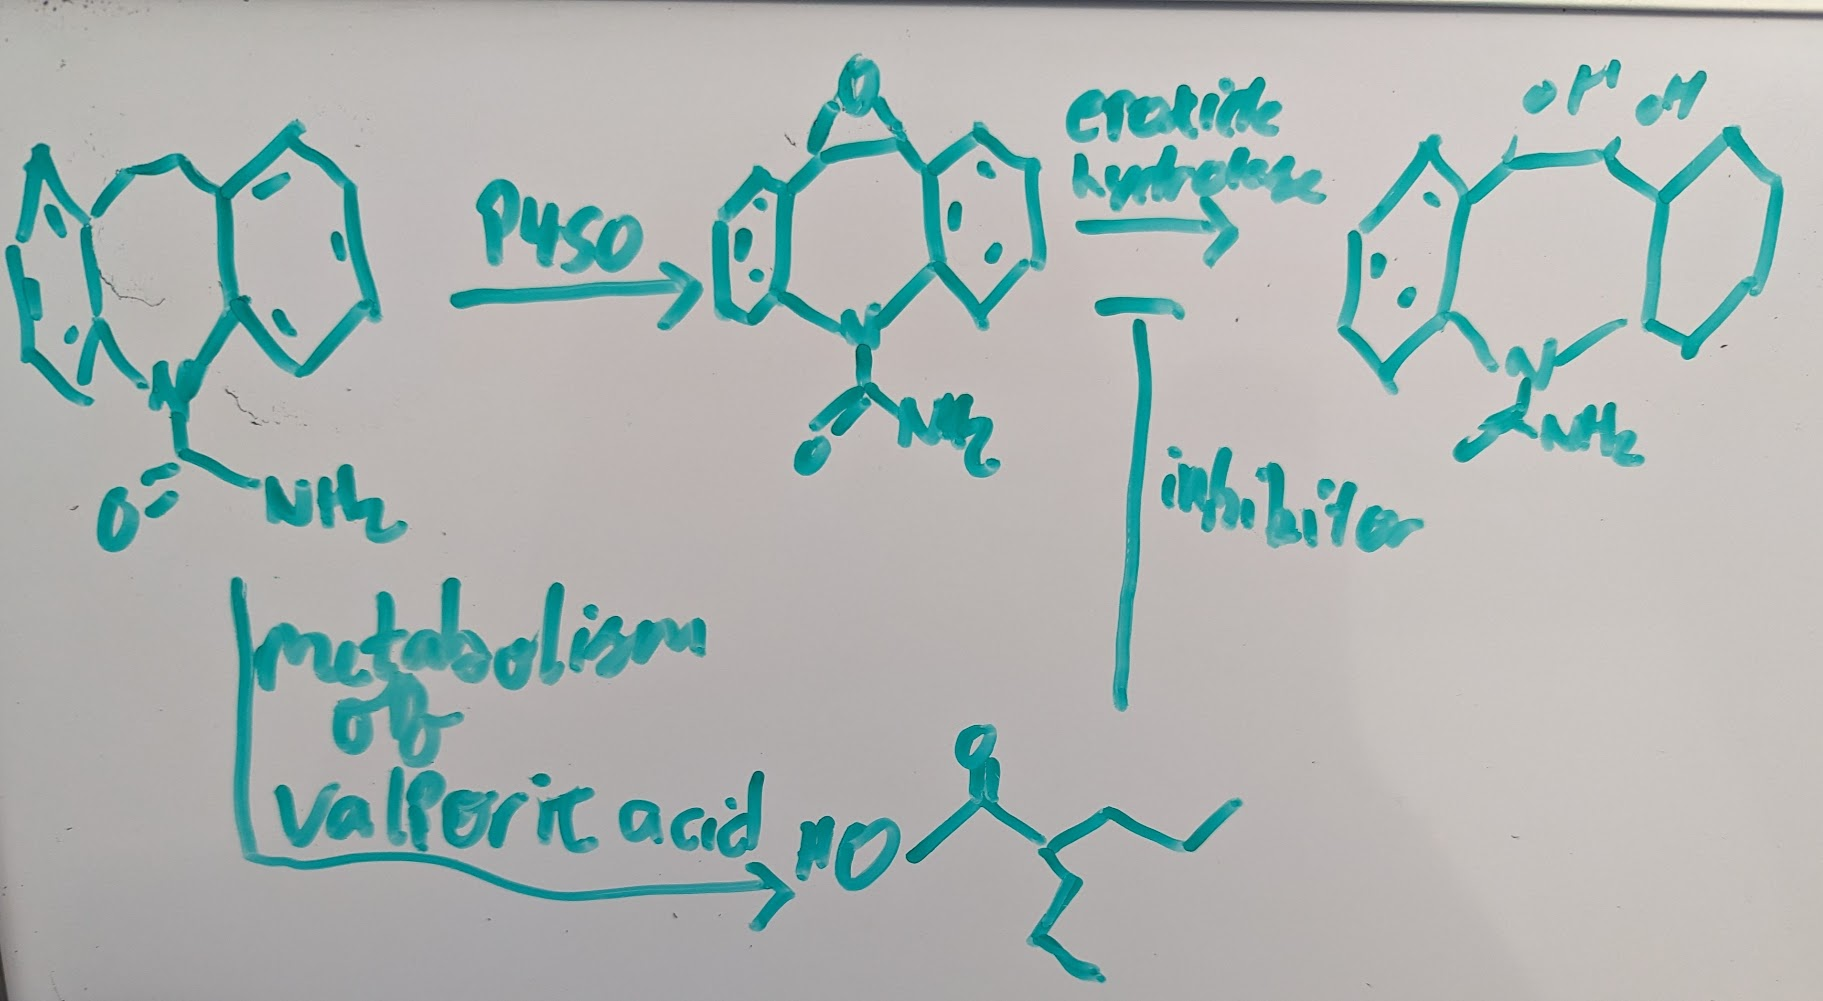 O
P450
epoxide
hydrolase
OH OH
N
O
NH2
N
O
NH2
N
NH2
inhibitor
metabolism
of
valporic acid
O
HO